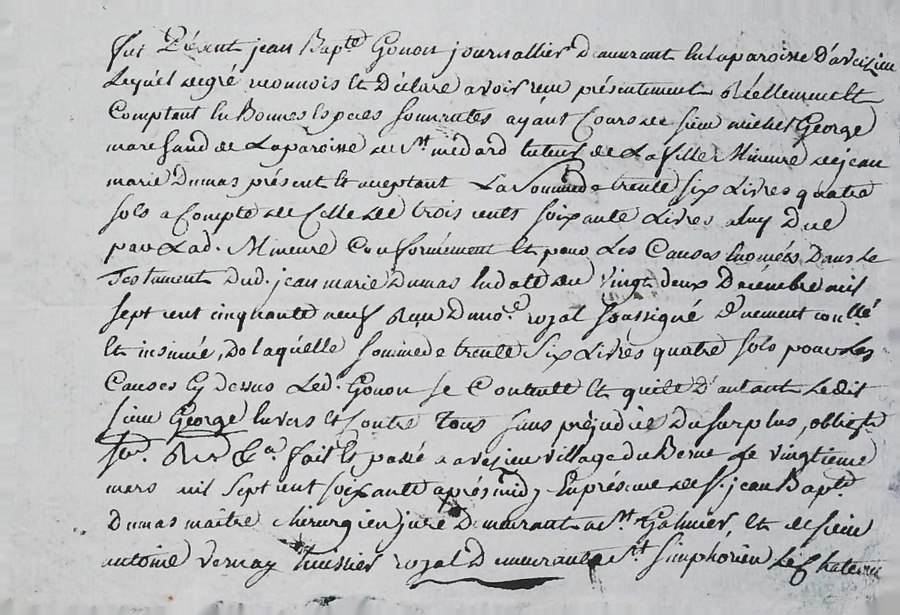 fut Présent jean Bapte Gonon journallier demeurant en la paroisse d'aveizieu
Lequel de gré reconnois et Déclare avoir reçu présentement Réellement et
Comptant en Bonnes Especes sonnantes ayant Cours de sieur michel George
marchand de Laparoisse de St médard tuteur de La fille Mineure de jean
marie Dumas présent et aceptant La Somme de trente Six Livres quatre
sols a Compte de Celle de trois cents soixante Livres aluy Due
par Lad. Mineure Conformément et pour Les Causes Enoncées Dans Le
Testament Dud. jean marie Dumas En date du Vingt deux Décembre mil
sept cent cinquante neuf Reçu D no.e royal soussigné Duement conllé
Et insinué, de laquelle somme de trente Six Livres quatre sols pour Les
Causes Cy dessus Led. Gonon se Contente Et quite D'autant Ledit
sieur George Envers et Contre tous sans préjudice Du surplus, oblig.
son. Ren. Ca. fait Et passé a aveizieu village du Berne Le vingtieme
mars mil Sept cent soixante après midy En présence de Sr. jean Bapte
Dumas maitre chirurgien juré Demeurant a St Galmier, Et de sieur
antoine Vernay huissier royal Demeurant a St simphorien Le Chateau